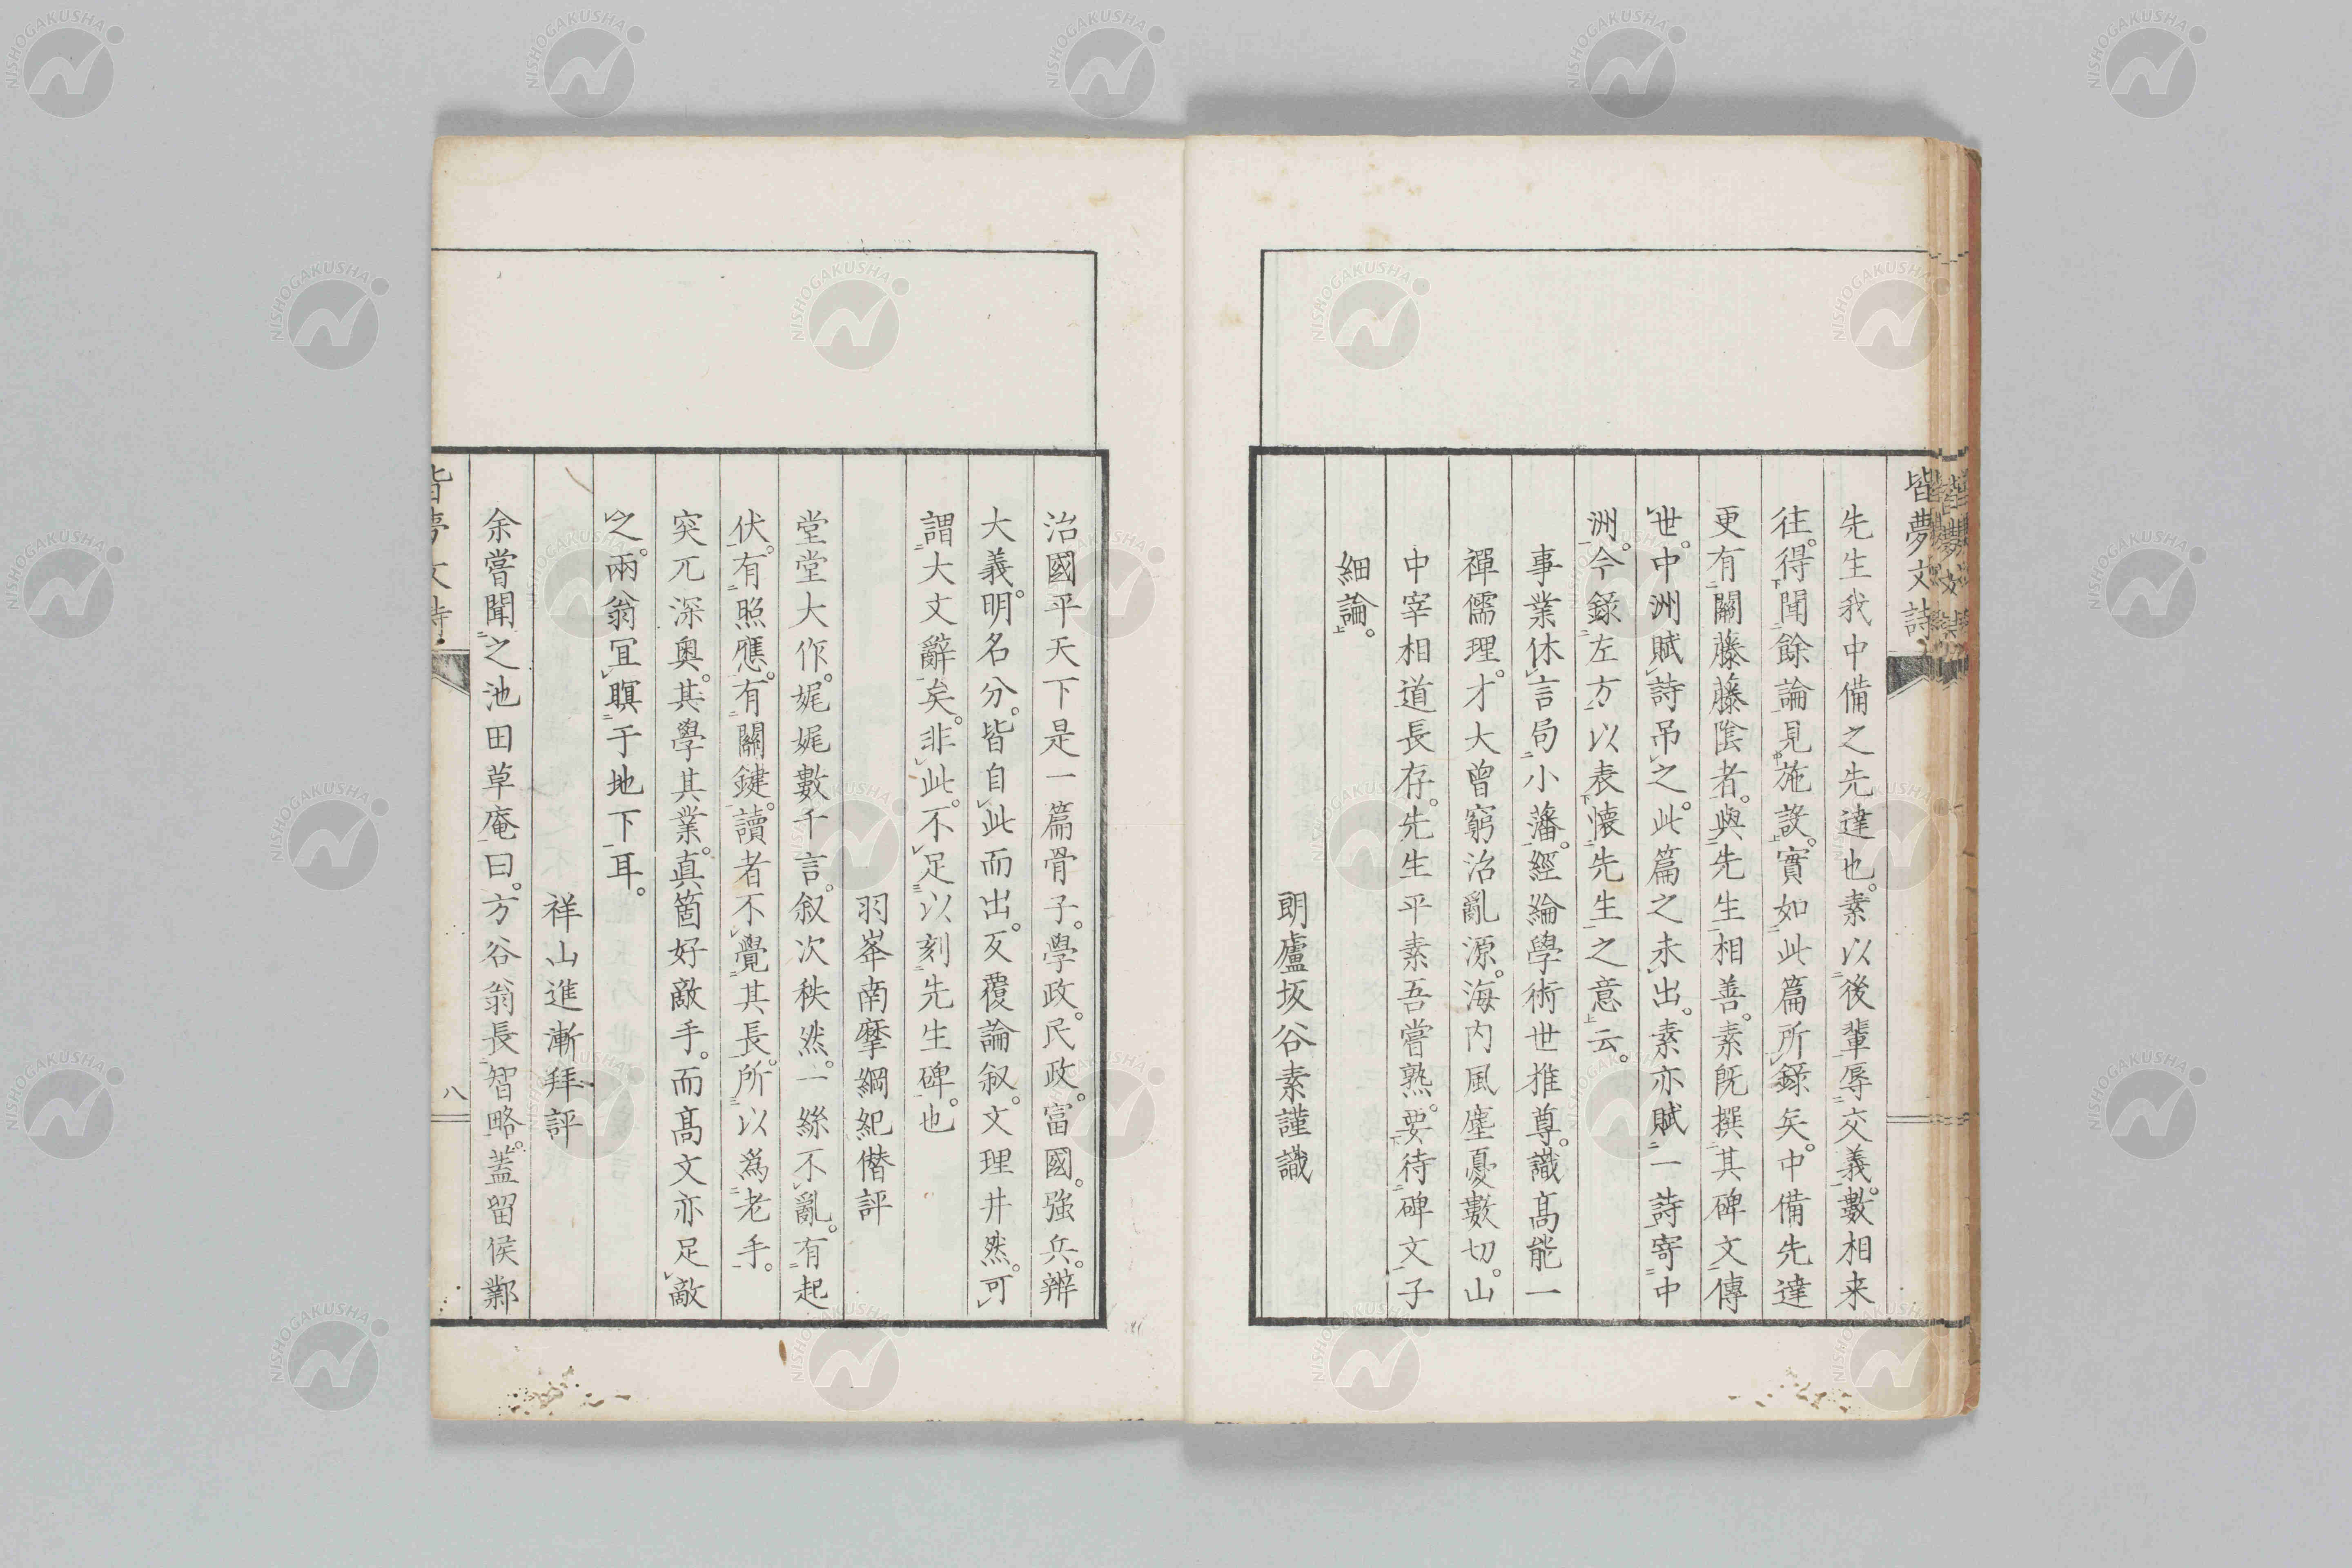 皆夢文詩
先生我中備之先達也。素以後輩辱交義。數相来
往。得聞餘論見施設。實如此篇所錄矣。中備先達
更有關藤藤陰者。與先生相善。素既撰其碑文傳
世。中洲賦詩吊之。此篇之未出。素亦賦一詩寄中
洲。今錄左方以表懐先生之意云。
事業休言局小藩。經綸學術世推尊。識髙能一
禪儒理。才大曾窮治亂源。海内風塵憂數切。山
中宰相道長存。先生平素吾嘗熟。要待碑文子
細論。
朗廬坂谷素謹識
治國平天下是一篇骨子。學政。民政。富國。強兵。辨
大義。明名分。皆自此而出。反覆論叙。文理井然。可
謂大文辭矣。非此。不足以刻先生碑。也
羽峯南摩綱紀僭評
堂堂大作。娓娓數千言。叙次秩然。一絲不亂。有起
伏。有照應。有關鍵。讀者不覺其長。所以爲老手。
突兀深奥。其學其業。真箇好敵手。而髙文亦足敵
之。兩翁宜瞑于地下耳。
祥山進漸拜評
余嘗聞之池田草庵曰。方谷翁長智略。蓋留侯鄴
皆夢文詩
八
NISHOGAKUSHA